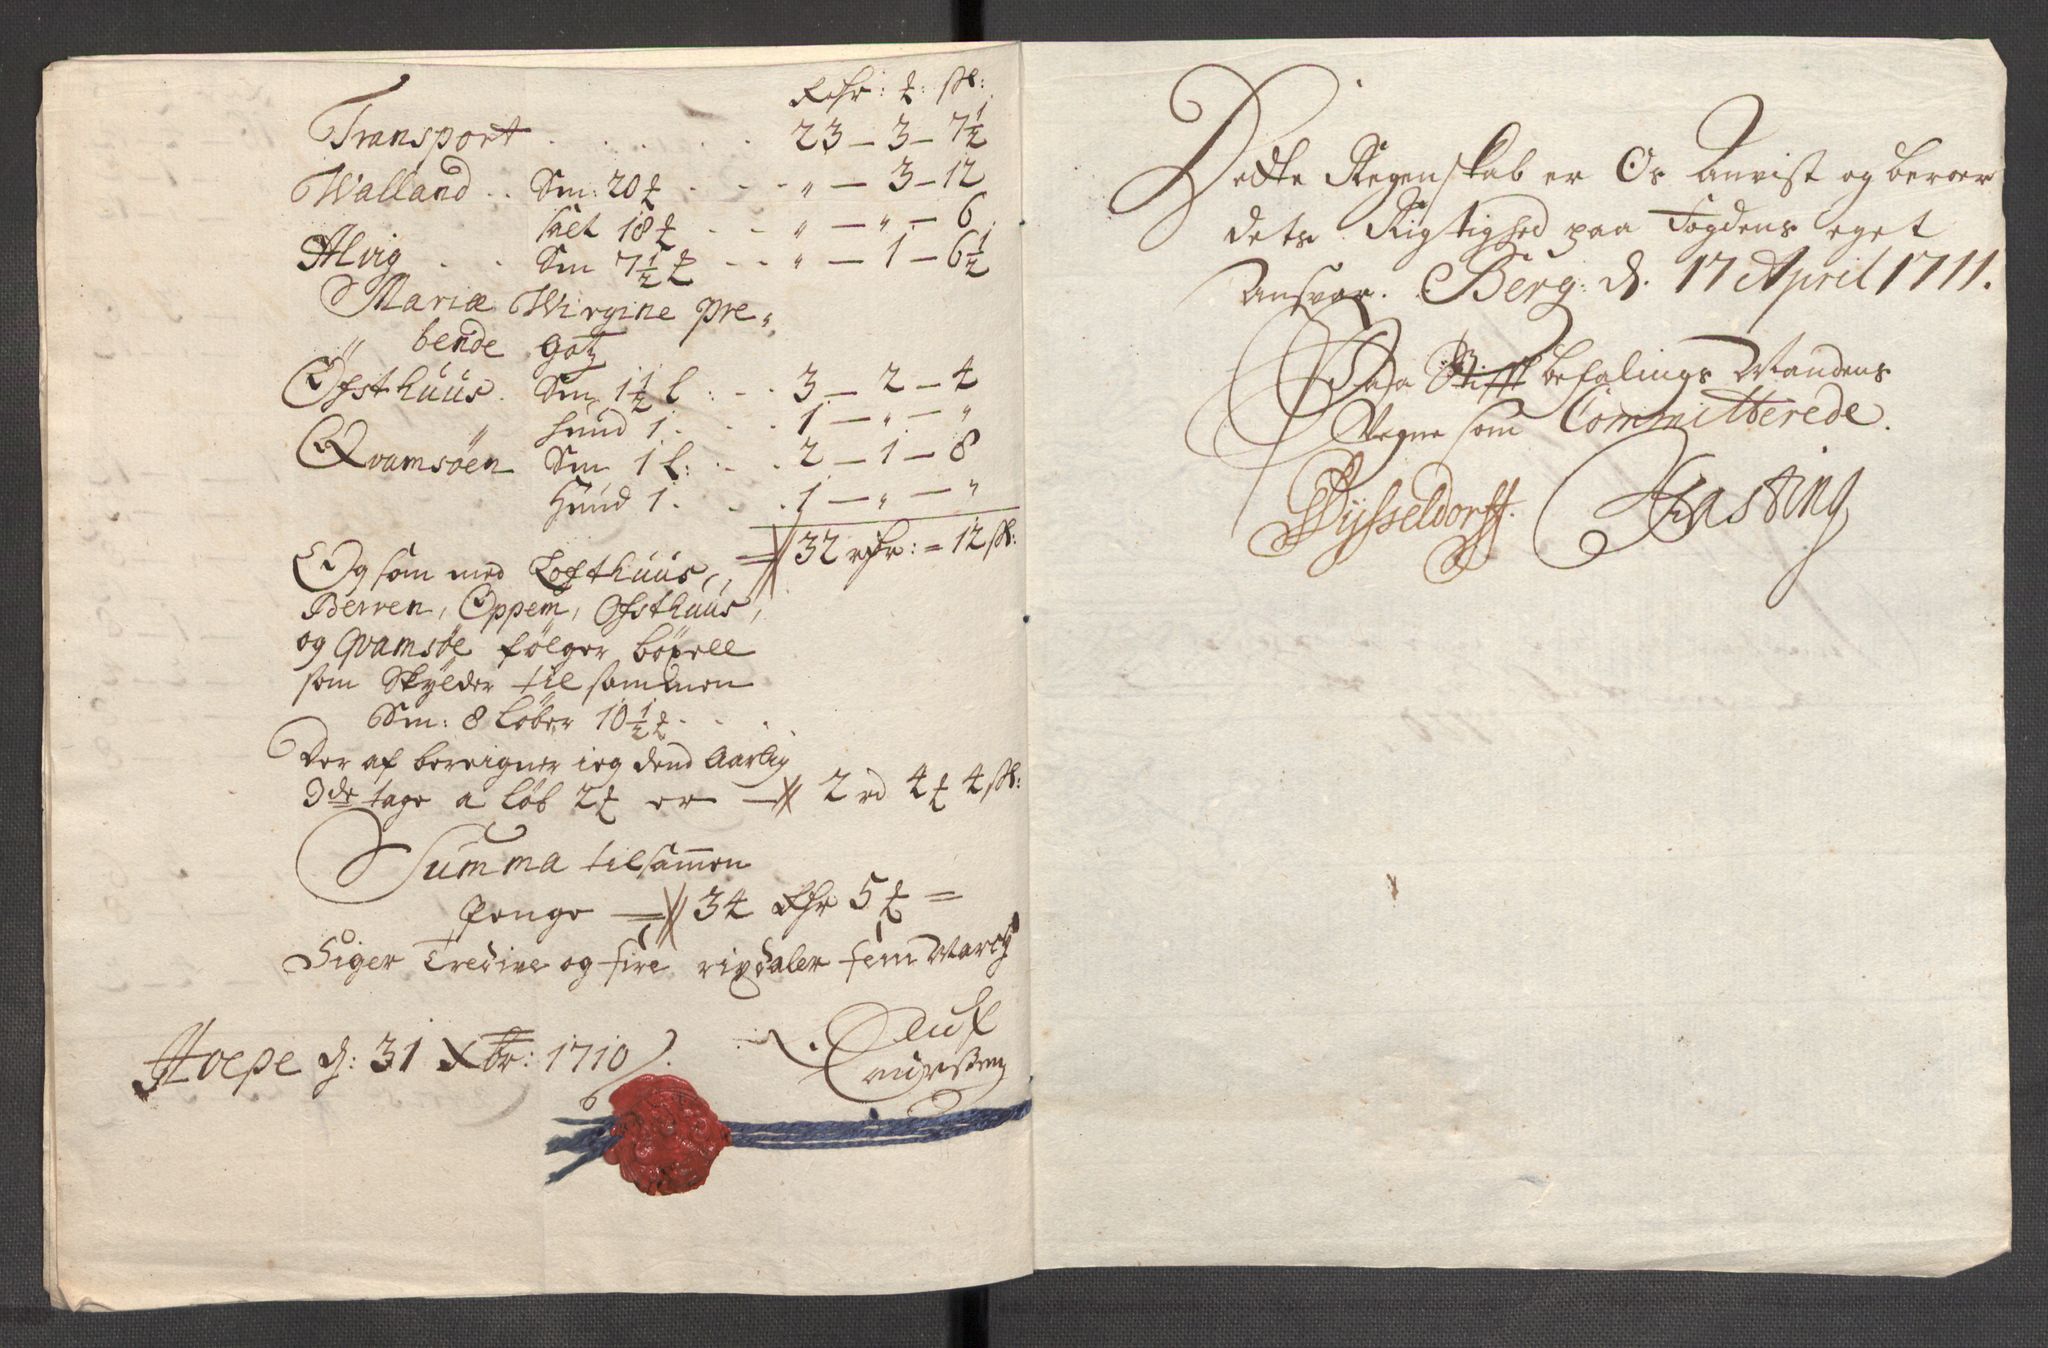 Rdr: ₰: sk:
Transport . . . . . 23 — 3 — 7½
Walland . . Sm: 20 ₰ . . . „ — 3 — 12
salt 18 ₰ . . „ — „ — 6
Alvig . . Sm 7½ ₰ . . „ — 1 — 6½
Mariæ Wirgine Pre„
„bende gotz
Ofsthuus . Sm 1½ l : . . 3 — 2 — 4
„ hund 1 . . . 1 — „ — „
Qvamsøen Sm 1 l: . . 2 — 1 — 8
hund 1 . . . 1 — „ — „
32 rdr: = 12 sk:
Og som med Lofthuus,
Berven, Oppem, Ofsthuus,
og Qvamsøe følger böxell
som Skylder tilsammen
Sm: 8 Løber 10½ ₰ . . .
Der af bereigner ieg dend Aarlig
3de tage a løb 2 ₰ er — 2 rd 4 ₰ 4 sk:
Summa tilsamen
Penge = 34 Rdr 5 ₰ =
Siger Tredive og fire rixdaler fem Marck
Hoepe d: 31 Xbr: 1710
Dette Regenskab er Os Anvist og beroer
dets Rigtighed paa Fogdens eget
Ansvar. Berg: d. 17 April 1711.
Paa Stifft befalings Mandens
Vegne som Committerede.
Wysseldorff. Hasting